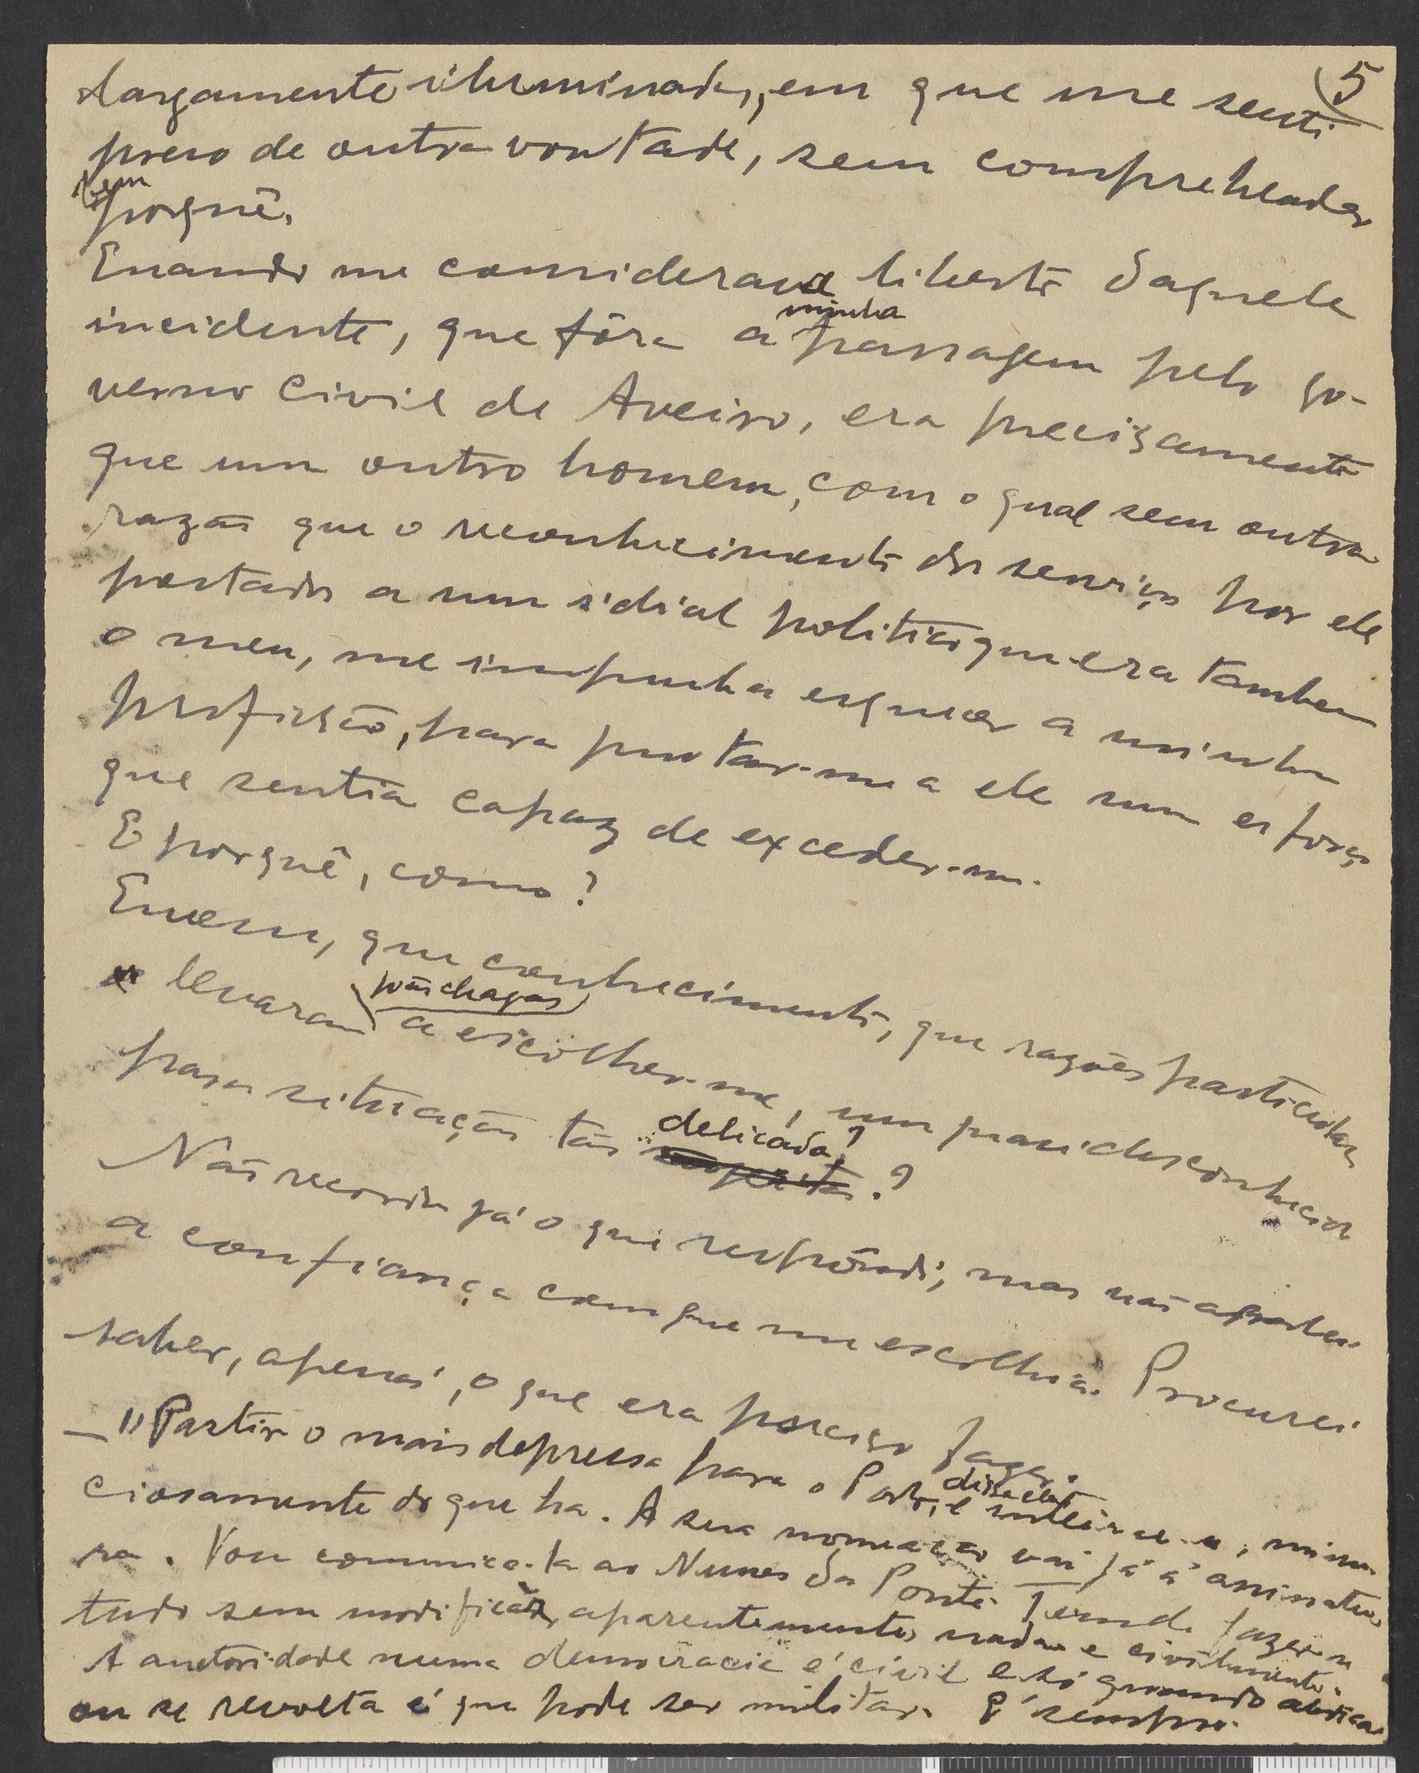 5
largamente iluminada, em que me senti
preso de outra vontade, sem comprehender
nem
porquê.
Quando me considerava liberto daquele
minha
incidente, que fôra a passagem pelo go-
verno civil de Aveiro, era precizamente
que um outro homem, com o qual sem outra
razão que o reconhecimento dos serviços por ele
prestados a um idial politico que era tambem
o meu, me impunha esquecer a minha
profissão, para prestar-me a ele num esforço
que sentia capaz de exceder-me.
E porquê, como?
Quem, que conhecimento, que razões particulares
levaram a escolher-me, um quasi desconhecido
João Chagas
para situação tão delicada?
Não recordo já o que respondi; mas não
a confiança com que me escolhia. Procurei
saber, apenas, o que era preciso fazer.
— "Partir o mais depressa para o Porto, e inteirar-se, minu-
ciosamente do que ha. A sua nomeação vai já á assinatu-
ra. Vou comunica-la ao Nunes da Ponte. Tem de fazer-se
tudo sem modificar, aparentemente, nada e civilmente.
A auctoridade numa democracia é civil e só quando abdica
ou se revolta é que pode ser militar. É sempre